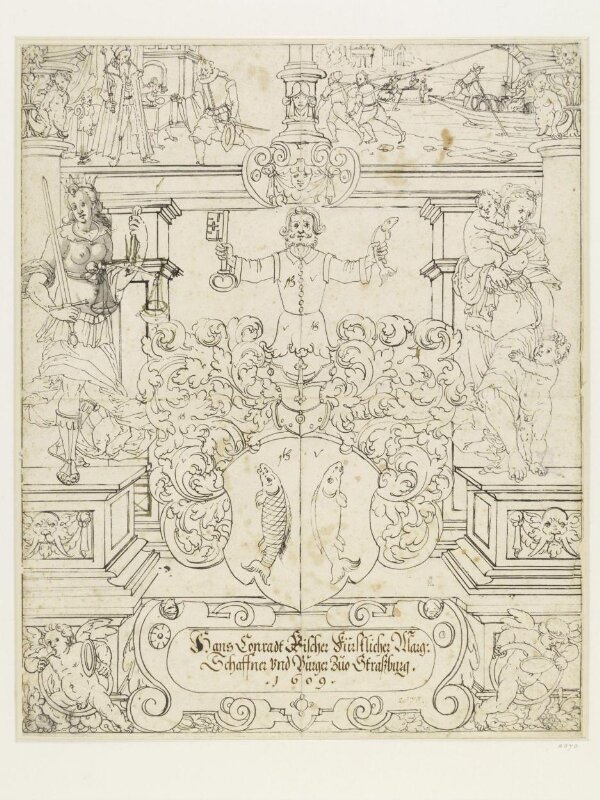 Hans Conradt Fischer Fürstlicher Marg:
Schaffner vnd Burger Zuo Straßburg.
. 1 6 0 9 .